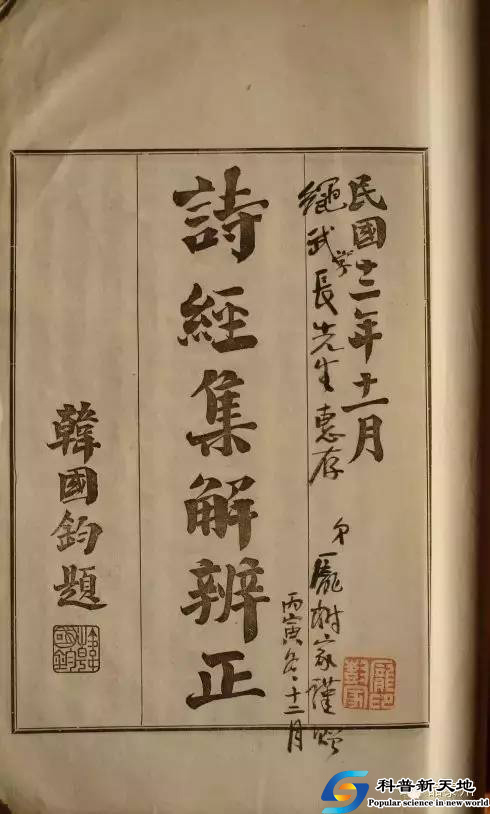 民國十二年十一月
繩武学長先生惠存
弟龐樹家謹贈
丙寅冬、十二月
詩經集解辨正
韓國鈞題
科普新天地
Popular science in new world